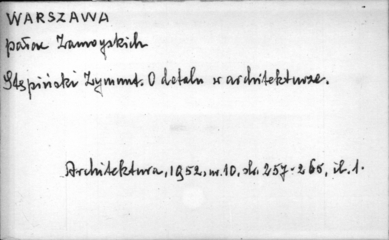 WARSZAWA
pałac Zamoyskich
Stępiński Zygmunt. O detalu w architekturze.
Architektura, 1952, nr. 10, str. 257-265, il. 1.